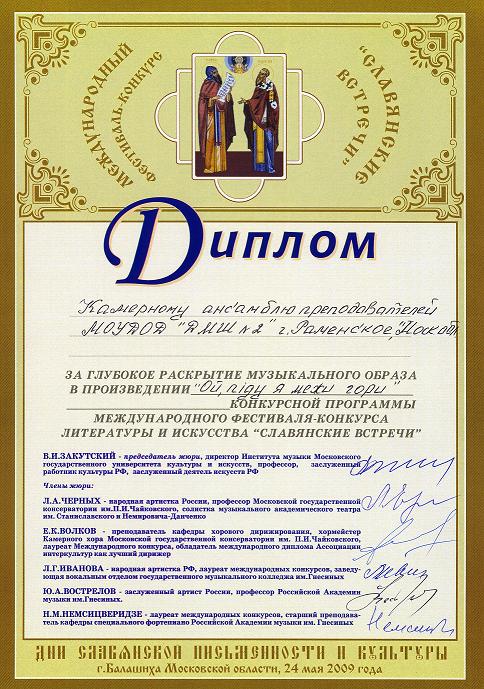 МЕЖДУНАРОДНЫЙ
ФЕСТИВАЛЬ-КОНКУРС
"СЛАВЯНСКИЕ
ВСТРЕЧИ"
Диплом
Камерному ансамблю преподавателей
МОУДОД "ДМШ №2" г. Раменское,
ЗА ГЛУБОКОЕ РАСКРЫТИЕ МУЗЫКАЛЬНОГО ОБРАЗА
В ПРОИЗВЕДЕНИИ "Ой, піду я межи гори"
КОНКУРСНОЙ ПРОГРАММЫ
МЕЖДУНАРОДНОГО ФЕСТИВАЛЯ-КОНКУРСА
ЛИТЕРАТУРЫ И ИСКУССТВА "СЛАВЯНСКИЕ ВСТРЕЧИ"
В.И.ЗАКУТСКИЙ - председатель жюри, директор Института музыки Московского
государственного университета культуры и искусств, профессор, заслуженный
работник культуры РФ, заслуженный деятель искусств РФ
Члены жюри:
Л.А.ЧЕРНЫХ - народная артистка России, профессор Московской государственной
консерватории им.П.И.Чайковского, солистка музыкального академического театра
им. Станиславского и Немировича-Данченко
Е.К.ВОЛКОВ - преподаватель кафедры хорового дирижирования, хормейстер
Камерного хора Московской государственной консерватории им. П.И.Чайковского,
лауреат Международного конкурса, обладатель международного диплома Ассоциации
интеркультур как лучший дирижер
Л.Г.ИВАНОВА - народная артистка РФ, лауреат международных конкурсов, заведу-
ющая вокальным отделом государственного музыкального колледжа им.Гнесиных
Ю.А.ВОСТРЕЛОВ - заслуженный артист России, профессор Российской Академии
музыки им.Гнесиных.
Н.М.НЕМСИЦВЕРИДЗЕ - лауреат международных конкурсов, старший преподава-
тель кафедры специального фортепиано Российской Академии музыки им. Гнесиных
ДНИ СЛАВЯНСКОЙ ПИСЬМЕННОСТИ И КУЛЬТУРЫ
г.Балашиха Московской области, 24 мая 2009 года